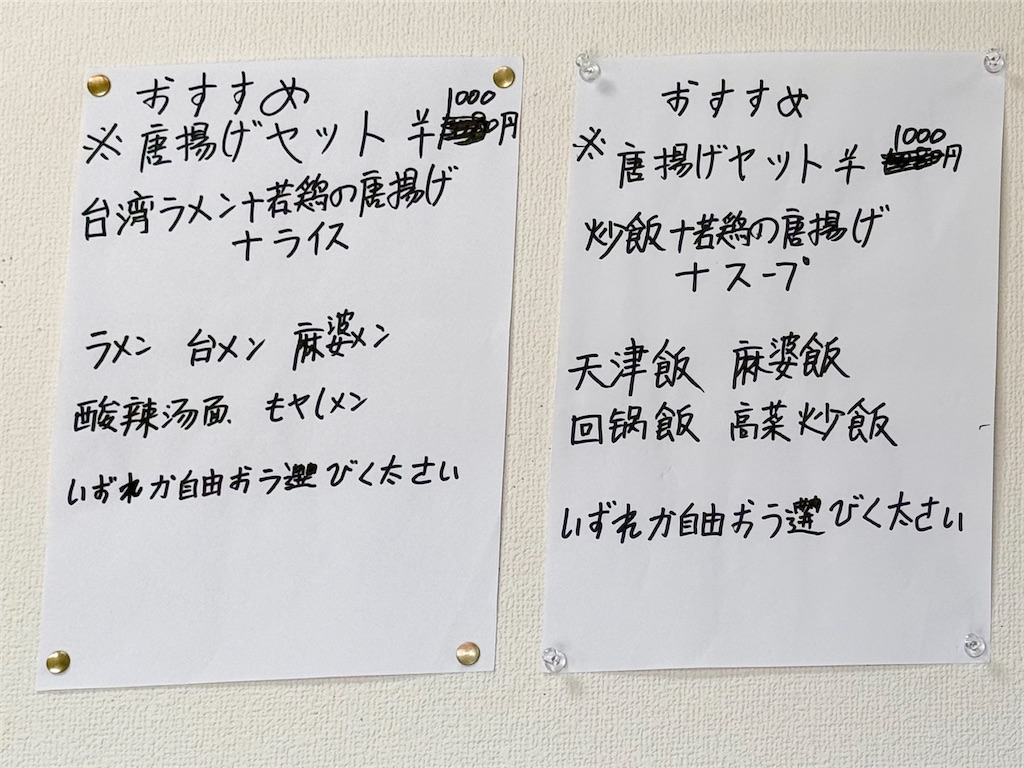 おすすめ
※唐揚げセット ¥1000円
台湾ラメン+若鶏の唐揚げ
+ライス
ラメン 台メン 麻婆メン
酸辣汤面 モヤしメン
いずれか自由おう選びく太さい
おすすめ
※唐揚げセット ¥1000円
炒飯+若鶏の唐揚げ
+スープ
天津飯 麻婆飯
回锅飯 高菜炒飯
いずれか自由おう選びく太さい